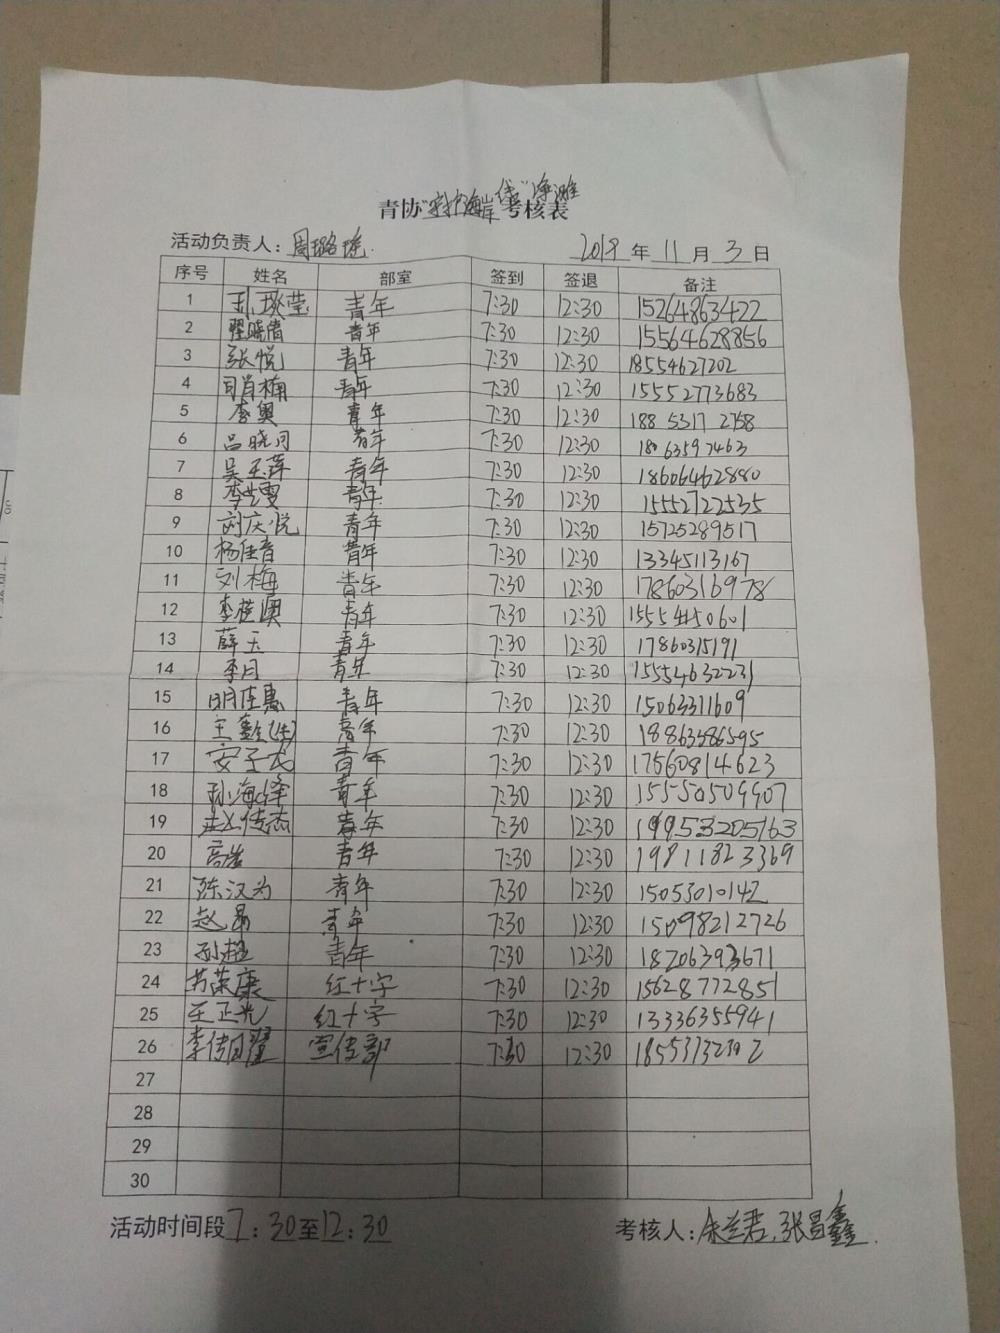 青协"守护海岸线"净滩考核表
活动负责人：周璐瑶.
2019 年 11 月 3 日
序号 姓名 部室 签到 签退 备注
1 孙瑛莹 青年 7:30 12:30 15264863422
2 翟晓倩 青年 7:30 12:30 15564628856
3 张悦 青年 7:30 12:30 18554627202
4 司肖楠 青年 7:30 12:30 15552773683
5 李奥 青年 7:30 12:30 188 5317 2758
6 吕晓月 青年 7:30 12:30 18063597463
7 吴玉萍 青年 7:30 12:30 18606462880
8 李兰雯 青年 7:30 12:30 15552722535
9 刘庆悦 青年 7:30 12:30 15725289517
10 杨佳音 青年 7:30 12:30 13345113167
11 刘梅 青年 7:30 12:30 17860316978
12 李桂澳 青年 7:30 12:30
13 薛玉 青年 7:30 12:30 1786035191
14 李月 青年 7:30 12:30 15554632231
15 明佳惠 青年 7:30 12:30 15063311609
16 王 青年 7:30 12:30 18863586595
17 安子衣 青年 7:30 12:30 17560814623
18 孙海峰 青年 7:30 12:30 15550509907
19 赵传杰 青年 7:30 12:30 19953205163
20 高岩 青年 7:30 12:30 19811823369
21 陈汉为 青年 7:30 12:30 15053010142
22 赵勇 青年 7:30 12:30 15098212726
23 孙超 青年 7:30 12:30 18206393671
24 苏荣康 红十字 7:30 12:30 15628772851
25 王正光 红十字 7:30 12:30 13336355941
26 李传曰翟 宣传部 7:30 12:30
27
28
29
30
活动时间段 7：30至12：30
考核人：余兰君，张昌鑫.